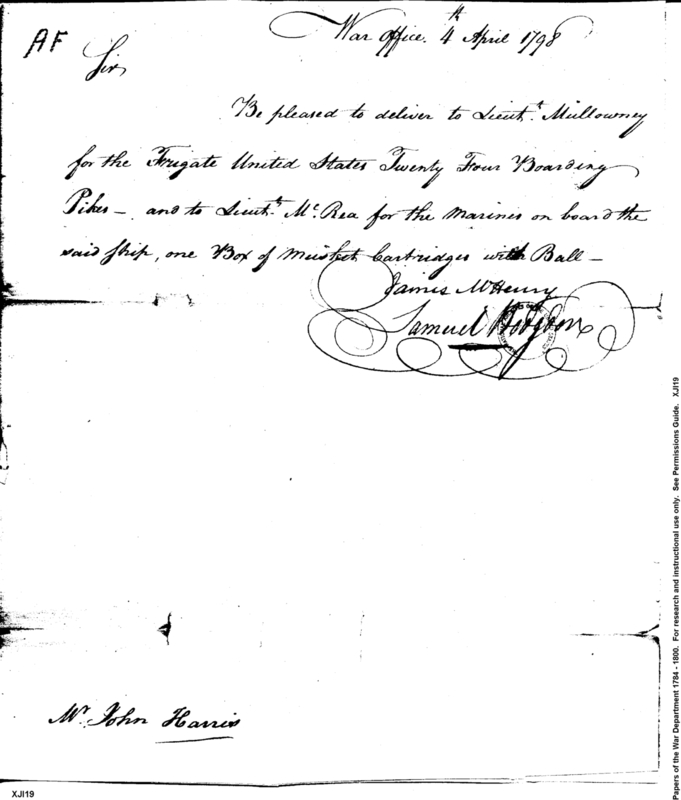 AF
War Office. 4th April 1798
Sir
Be pleased to deliver to Lieut. Mullowney
for the Frigate United States Twenty Four Boarding
Pikes — and to Lieut. Mc. Rea for the Marines on board the
said ship, one Box of Musket Cartridges with Ball —
James McHenry
Samuel Hodgdon
Mr. John Harris
XJI19
Papers of the War Department 1784 - 1800. For research and instructional use only. See Permissions Guide. XJI19